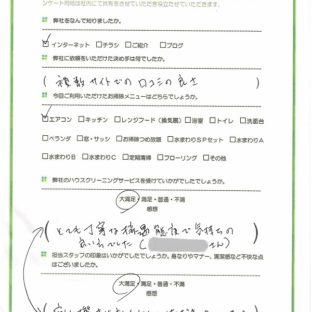 ンケート用紙は社内にて共有をさせていただき役立たせていただきます。
弊社をなんで知りましたか。
☑インターネット □チラシ □ご紹介 □ブログ
弊社に依頼をいただいた決め手は何でしたか。
(複数サイトでの口コミの良さ)
今回ご利用いただいたお掃除メニューはどちらでしょうか。
☑エアコン □キッチン □レンジフード(換気扇) □浴室 □トイレ □洗面台
□ベランダ □窓・サッシ □お掃除つめ放題 □水まわりSPセット □水まわりA
□水まわりB □水まわりC □定期清掃 □フローリング □その他
弊社のハウスクリーニングサービスを受けていかがでしたでしょうか。
大満足・満足・普通・不満
感想
とても丁寧な接客態度で気持ちの
良いでした( さん)
担当スタッフの印象はいかがでしたでしょうか。身なりやマナー、清潔感など不快な点
はございましたか。
大満足・満足・普通・不満
感想